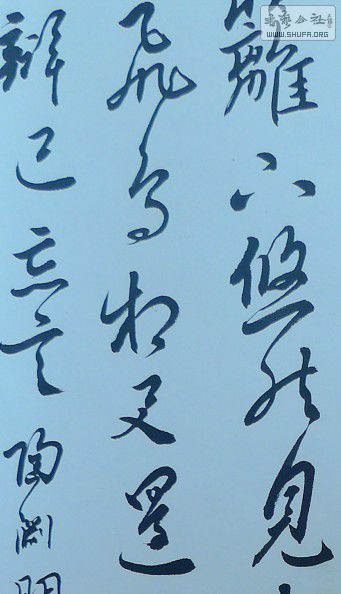 書藝公社
WWW.SHUFA.ORG
籬下悠然見
飛鳥相与還
辨已忘言 陶淵明